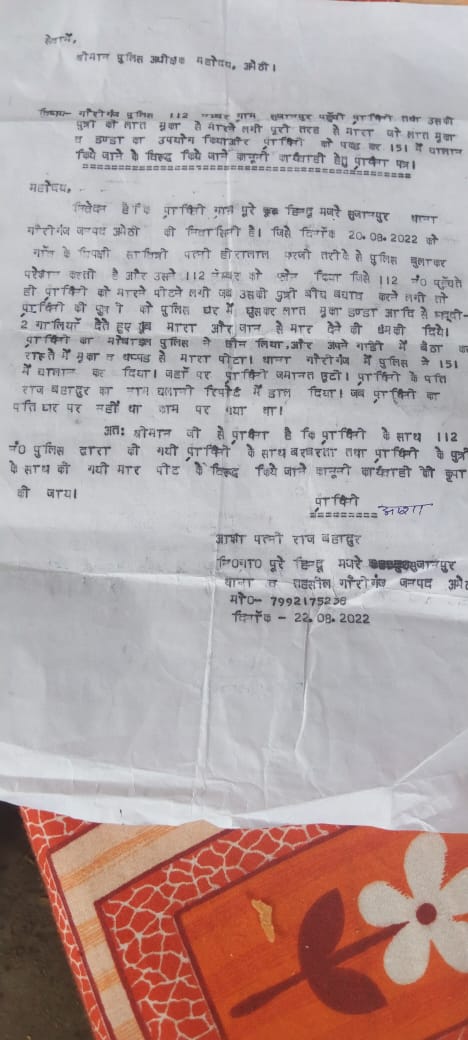 सेवामें,
श्रीमान पुलिस अधीक्षक महोदय, अमेठी।
विषय- गौरीगंज पुलिस 112 नम्बर ग्राम सुजानपुर पहुँची प्रार्थिनी तथा उसकी
पुत्री को लात मुका से मारने लगी पूरी तरह से मारा जो लात मुका
व डण्डा का उपयोग किया और प्रार्थिनी को पकड़ कर 151 में चालान
किये जाने के विरुद्ध किये जाने कानूनी कार्यवाही हेतु प्रार्थना पत्र।
महोदय,
निवेदन है कि प्रार्थिनी ग्राम पूरे हिन्दू मजरे सुजानपुर थाना
गौरीगंज जनपद अमेठी की निवासिनी है। जिसे दिनाँक 20.08.2022 को
गाँव के विपक्षी सावित्री पत्नी हीरालाल फर्जी तरीके से पुलिस बुलाकर
परेशान करती है और उसने 112 नम्बर को फोन दिया जिसे 112 नं0 पहुँचते
ही प्रार्थिनी को मारने पीटने लगी जब उसकी पुत्री बीच बचाव करने लगी तो
प्रार्थिनी की पुत्री को पुलिस घर में घुसकर लात मुका डण्डा आदि से भद्दी-
2 गालियाँ देते हुए खुब मारा और जान से मार देने की धमकी दिये।
प्रार्थिनी का मोबाइल पुलिस ने छीन लिया,और अपने गाडी में बैठा कर
रास्ते में मुका व थप्पड से मारा पीटा। थाना गौरीगंज में पुलिस ने 151
में चालान कर दिया। जहाँ पर प्रार्थिनी जमानत छुटी। प्रार्थिनी के पति
राज बहादुर का नाम चलानी रिपोर्ट में डाल दिया। जब प्रार्थिनी का
पति घर पर नहीं था काम पर गया था।
अतः श्रीमान जी से प्रार्थना है कि प्रार्थिनी के साथ 112
नं0 पुलिस द्वारा की गयी प्रार्थिनी के साथ बरबरता तथा प्रार्थिनी के पुत्री
के साथ की गयी मार पीट के विरुद्ध किये जाने कानूनी कार्यवाही की कृपा
की जाय।
प्रार्थिनी आशा
आशा पत्नी राज बहादुर
नि0ग्रा0 पूरे हिन्दू मजरे सुजानपुर
थाना व तहसील गौरीगंज जनपद अमेठी
मो0- 7992175238
दिनाँक - 22.08.2022